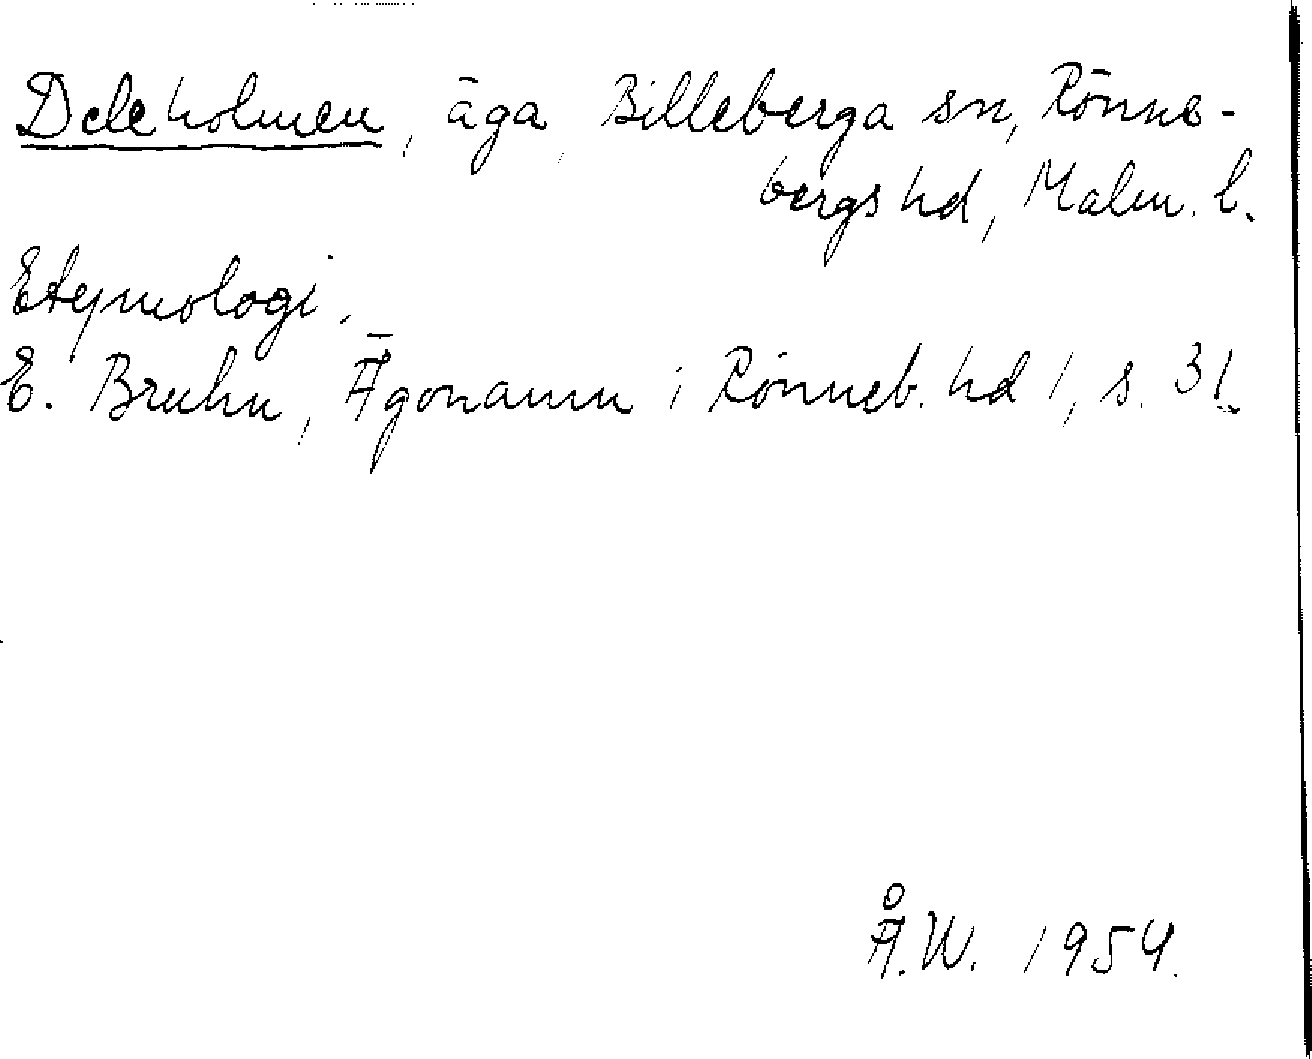 Deleholmen, äga, Billeberga sn, Rönne-
bergs hd, Malm. l.
Etymologi.
E. Bruhn, Ägonamn i Rönneb. hd 1, s. 31.
Å.W. 1954.